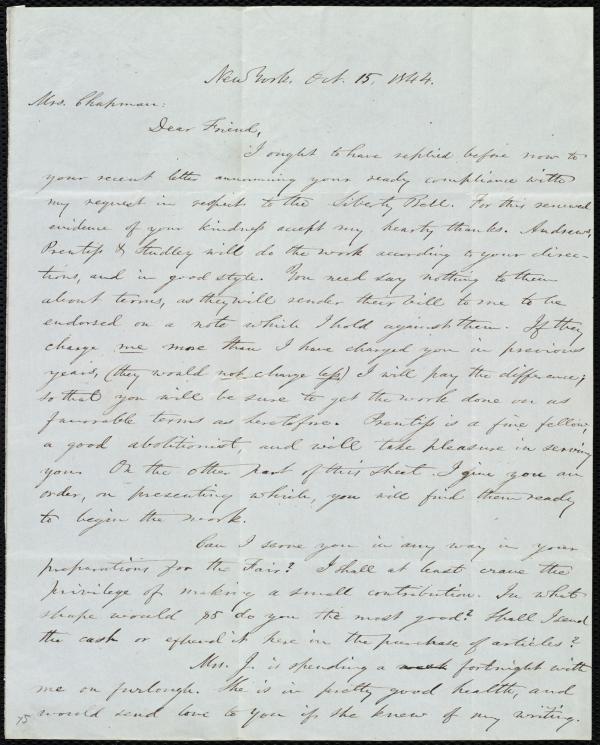 New York, Oct. 15, 1844.
Mrs. Chapman:
Dear Friend,
I ought to have replied before now to
your recent letter announcing your ready compliance with
my request in respect to the Liberty Bell. For this renewed
evidence of your kindness accept my hearty thanks. Andrews,
Prentiss & Studley will do the work according to your direc-
tions, and in good style. You need say nothing to them
about terms, as they will render their bill to me to be
endorsed on a note which I hold against them. If they
charge me more than I have charged you in previous
years, (they would not charge less) I will pay the difference;
so that you will be sure to get the work done on as
favorable terms as heretofore. Prentiss is a fine fellow,
a good abolitionist, and will take pleasure in serving
you. On the other part of this sheet I give you an
order, on presenting which, you will find them ready
to begin the work.
Can I serve you in any way in your
preparations for the Fair? I shall at least crave the
privilege of making a small contribution. In what
shape would $5 do you the most good? Shall I send
the cash or expend it here in the purchase of articles?
Mrs. J. is spending a fortnight with
me on furlough. She is in pretty good health, and
would send love to you if she knew of my writing.